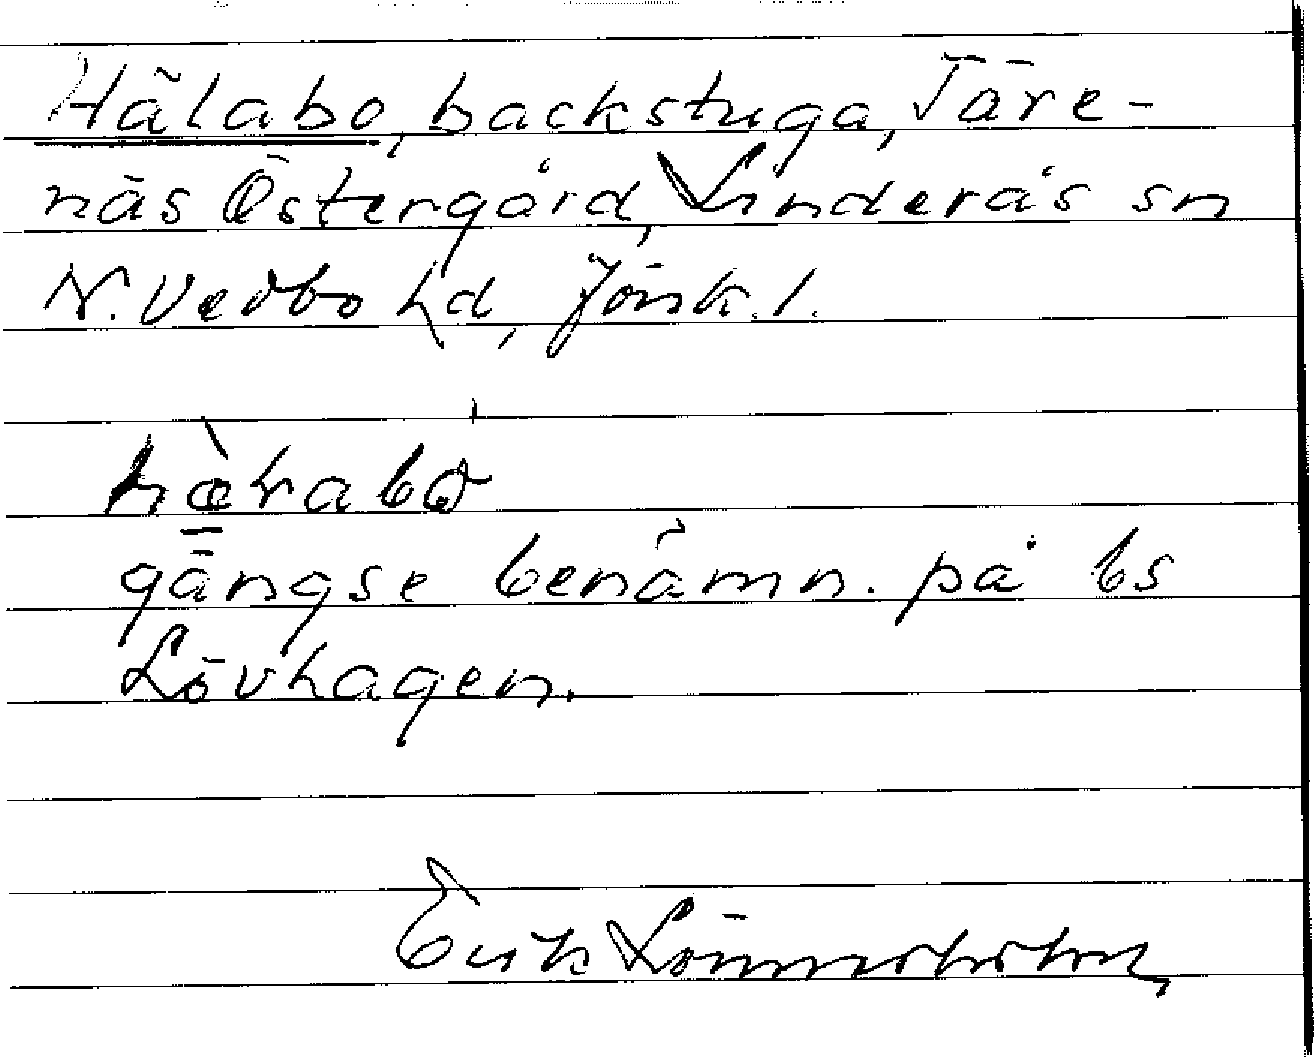 Hälabo, backstuga, Täre-
näs Östergård, Linderås sn
N. Vedbo hd, Jönk. l.
hæ̀rabo
gängse benämn. på bs
Lövhagen.
Erik